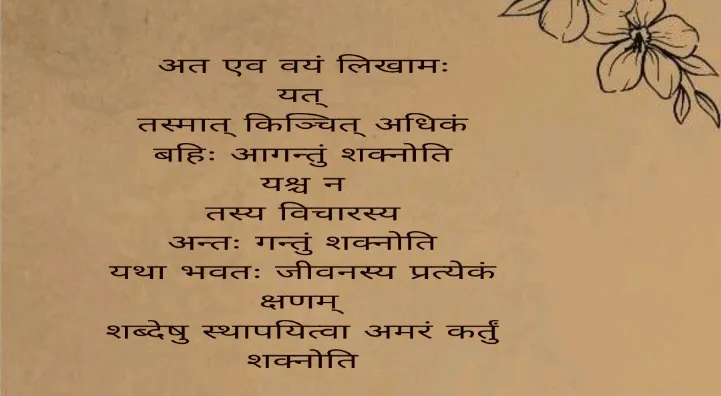 अत एव वयं लिखामः
यत्
तस्मात् किञ्चित् अधिकं
बहिः आगन्तुं शक्नोति
यश्च न
तस्य विचारस्य
अन्तः गन्तुं शक्नोति
यथा भवतः जीवनस्य प्रत्येकं
क्षणम्
शब्देषु स्थापयित्वा अमरं कर्तुं
शक्नोति